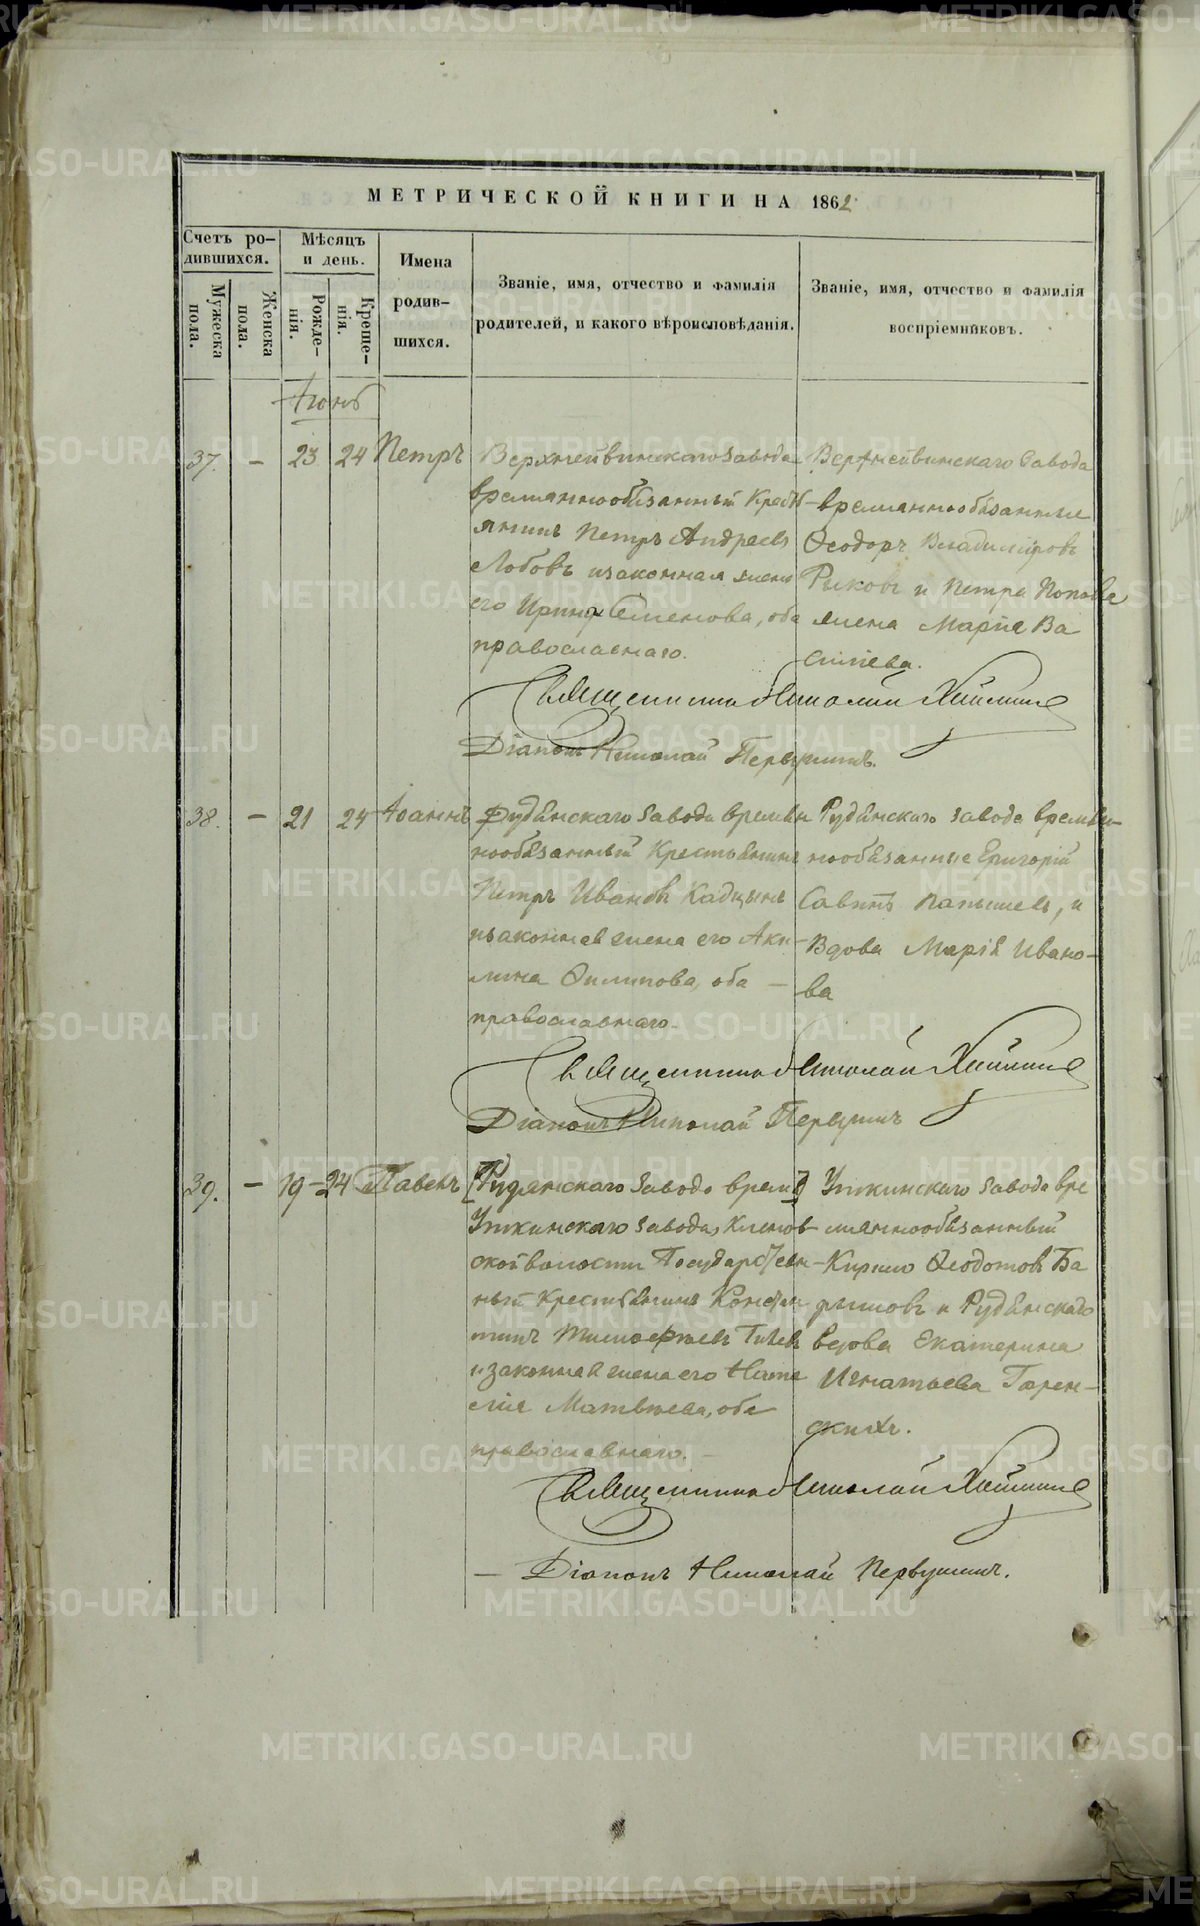 МЕТРИЧЕСКОЙ КНИГИ НА 1862
Счетъ ро-
дившихся.
Мѣсяцъ
и день.
Имена
родив-
шихся.
Званіе, имя, отчество и фамилія
родителей, и какого вѣроисповѣданія.
Званіе, имя, отчество и фамилія
воспріемниковъ.
Мужеска
пола.
Женска
пола.
Рожде-
нія.
Креще-
нія.
Іюнь
37. — 23 24 Петръ
Верхнейвинскаго завода
временнообязанный Кресть-
янинъ Петръ Андреевъ
Лобовъ изаконная жена
его Ирина Семенова, оба
православнаго.
Верхнейвинскаго Завода
временнообязанные
Ѳеодоръ Владиміровъ
Рыковъ и Петра Попова
жена Марія Ва
силіева.
Священникъ Николай
Діаконъ Николай Первушинъ.
38. — 21 24 Іоаннъ
Рудянскаго завода времен
нообязанный Крестьянинъ
Петръ Ивановъ Кадцынъ
изаконная жена его Аку-
лина Филипова, оба —
православнаго.
Рудянскаго завода времен-
нообязанные Григорій
Савинъ, и
Вдова Марія Ивано-
ва
Священникъ Николай
Діаконъ Николай Первушинъ
39. — 19 — 24 Павелъ
[Рудянскаго Завода врем]
Уткинскаго завода, Кленов-
ской волости Государствен-
ный Крестьянинъ Констан
тинъ Тимофѣевъ
изаконная жена его Ната
лія Матвѣева, оба
православнаго. —
Уткинскаго Завода вре
меннообязанный
Кирило Ѳеодотовъ Ба
рышовъ и Рудянскаго
вдова Екатерина
Игнатьева Гарен-
скихъ.
Священникъ Николай
— Діаконъ Николай Первушинъ.
METRIKI.GASO-URAL.RU